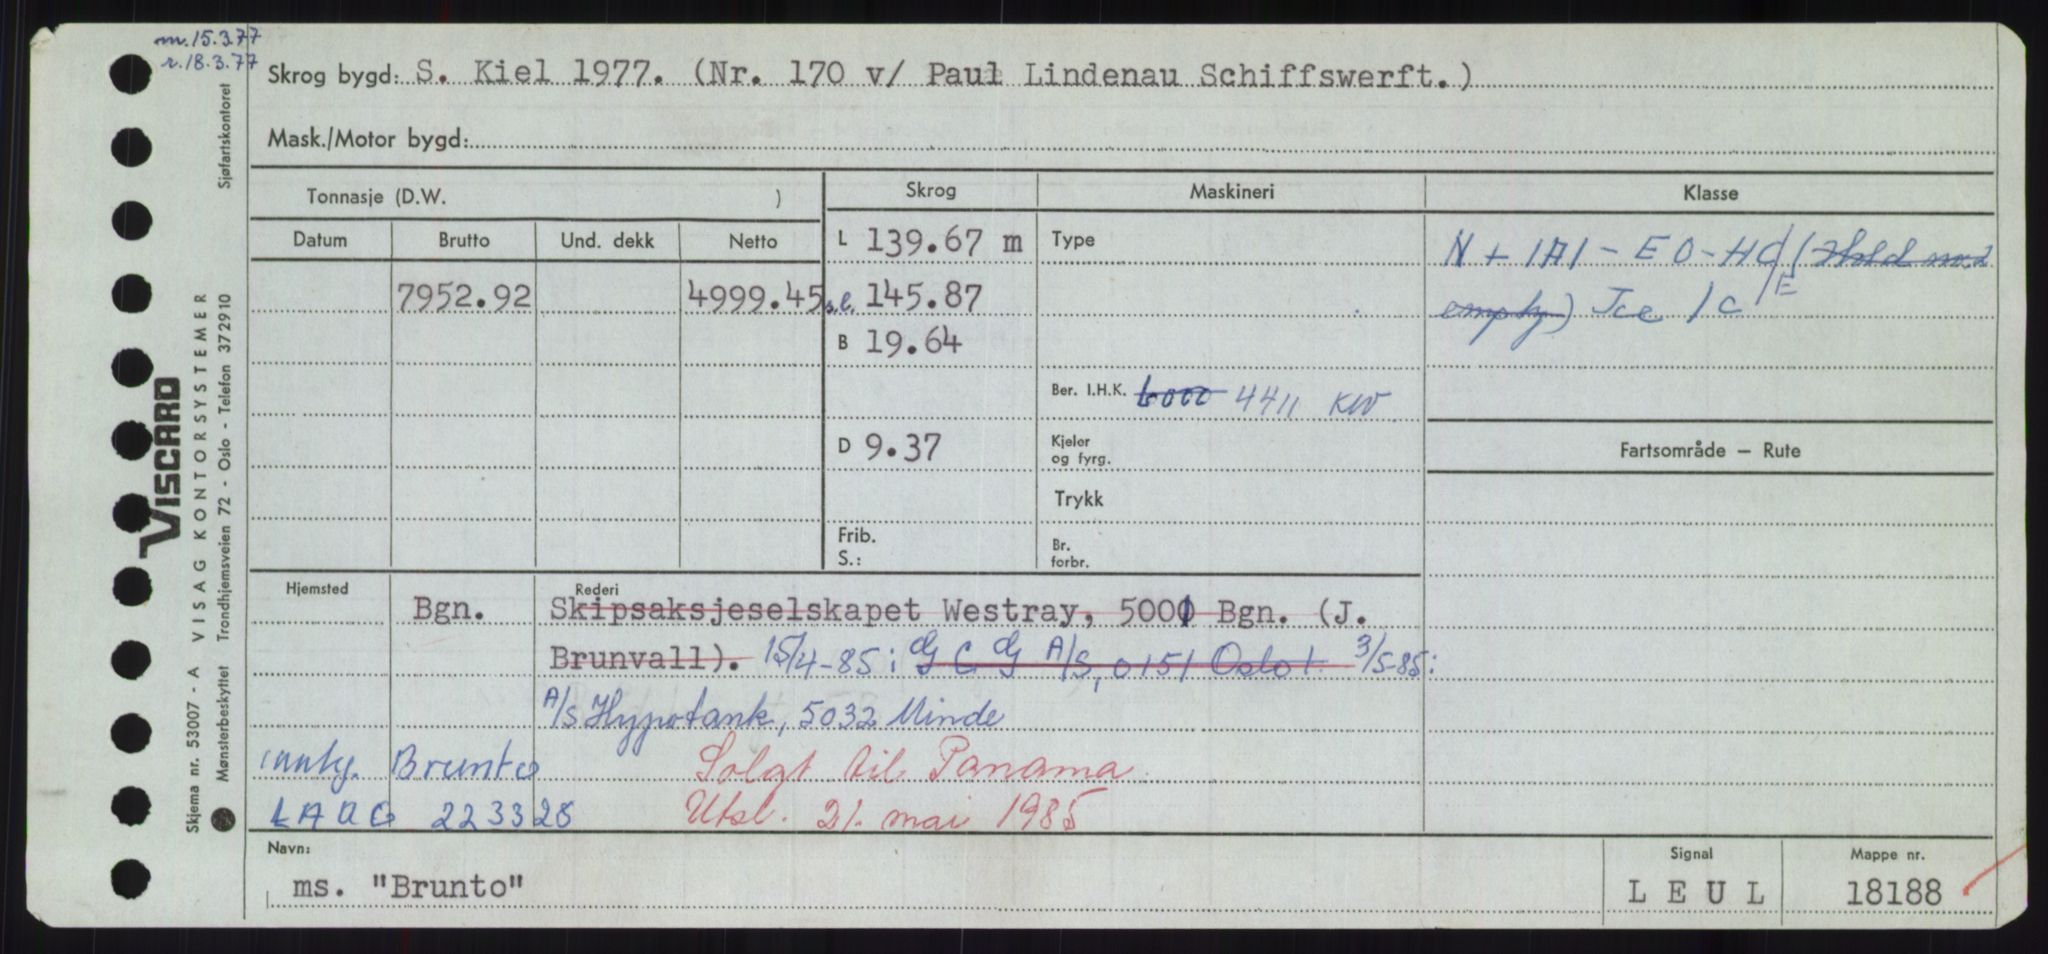 m. 15.3.77
r. 18.3.77
Skrog bygd: S. Kiel 1977. (Nr. 170 v/ Paul Lindenau Schiffswerft.)
Mask./Motor bygd:
Tonnasje (D.W. )
Skrog
Maskineri
Klasse
Datum Brutto Und. dekk Netto
7952.92 4999.45
L 139.67 m
s.l. 145.87
B 19.64
D 9.37
Frib.
S.:
Type
Ber. I.H.K. 6000 4411 KW
Kjeler
og fyrg.
Trykk
Br.
forbr.
N + 1A1 - E0 - HC/E (Hold no. 2
empty) Ice 1C
Fartsområde — Rute
Hjemsted
Rederi
Bgn. Skipsaksjeselskapet Westray, 5000 Bgn. (J.
Brunvall). 15/4-85: G C G A/S, 0151 Oslo 1 3/5-85:
A/S Hypotank, 5032 Minde
innkj. Brunto Solgt til Panama
LAUG 223328 Utsl. 21. mai 1985
Navn:
ms. "Brunto"
Signal
L E U L
Mappe nr.
18188
Skjema nr. 53007 - A VISAG KONTORSYSTEMER
Mønsterbeskyttet Trondhjemsveien 72 - Oslo - Telefon 372910
Sjøfartskontoret
VISCARD